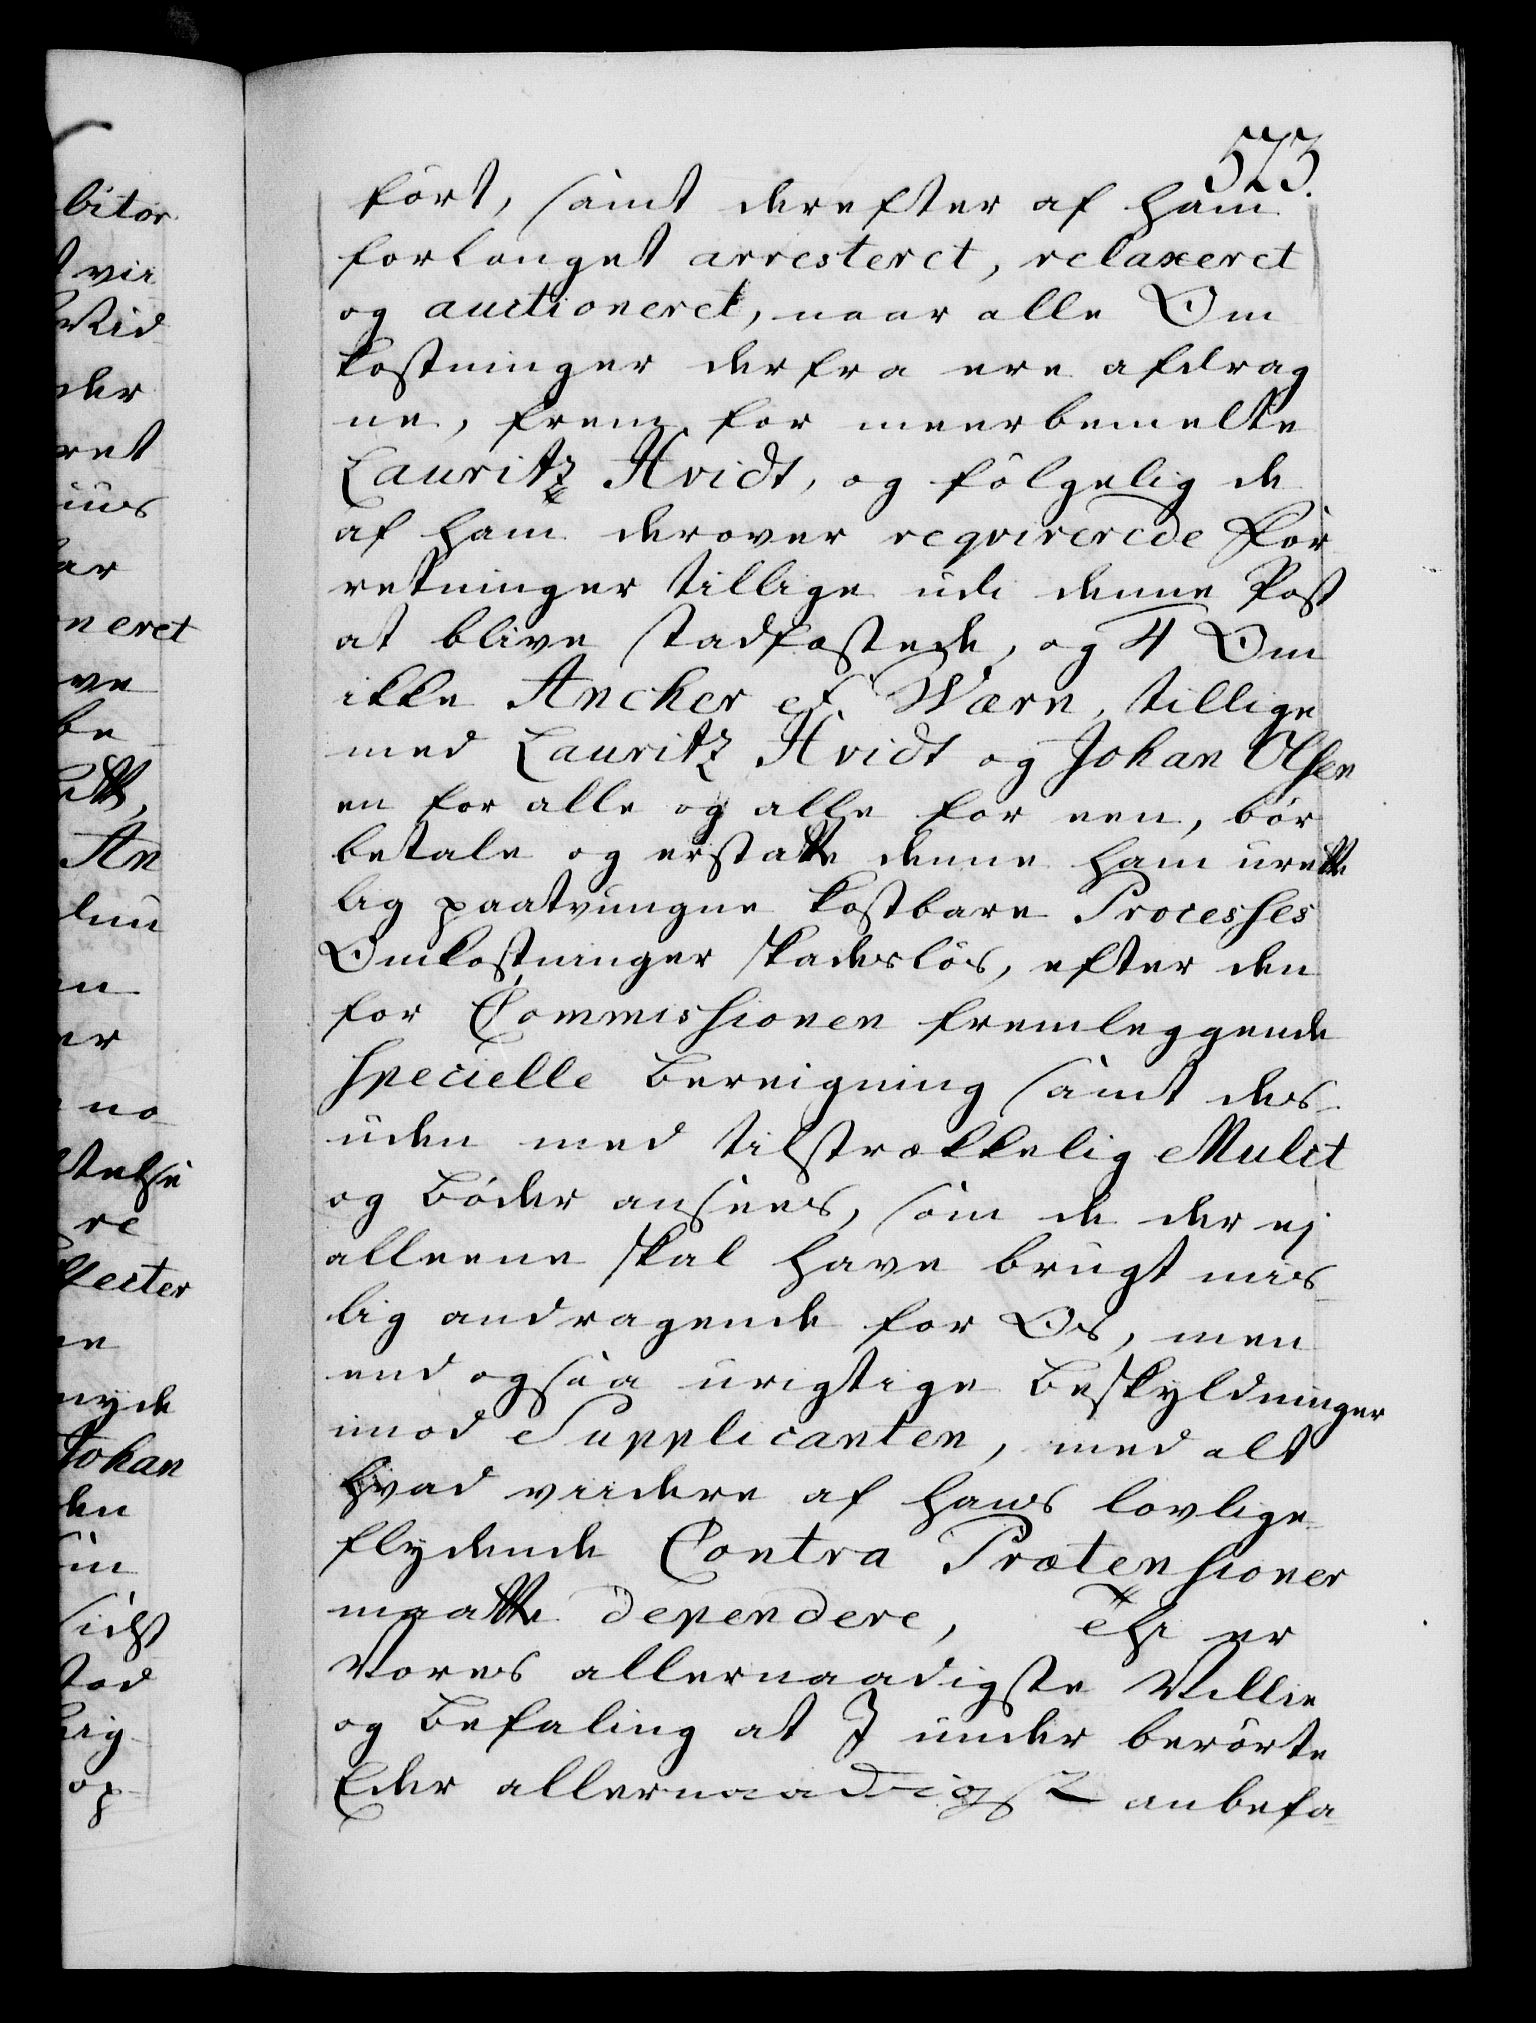 573.
ført, samt derefter af ham
forlanget arresteret, relaxeret
og auctioneret, naar alle Om
kostninger derfra ere afdrag
ne, frem for meerbemelte
Lauritz Hvidt, og følgelig de
af ham derover reqvirerede For
retninger tillige udi denne Post
at blive stadfæstede, og 4 Om
ikke Ancker et Wærn, tillige
med Lauritz Hvidt og Johan Olsen
en for alle og alle for een, bør
betale og erstatte denne ham urette
lig paatvungne kostbare Processes
Omkostninger skadesløs, efter den
for Commissionen fremleggende
specielle Bereigning samt des-
uden med tilstrækkelig Mulct
og Bøder ansees, som de der ej
alleene skal have brugt mis-
lig andragende for Os, men
end ogsaa urigtige Beskyldninger
imod Supplicanten, med alt
hvad viidere af hans lovlige
flydende Contra Prætensioner
maatte dependere, Thi er
Vores allernaadigste Villie
og Befaling at I under berørte
Eder allernaadigst anbefa-
bitor
vii
der
ret
ar
neret
ve
be
An
en
er
no-
telse
re
fecter
ne
nyde
Johan
den
sidst
tod
lig
op